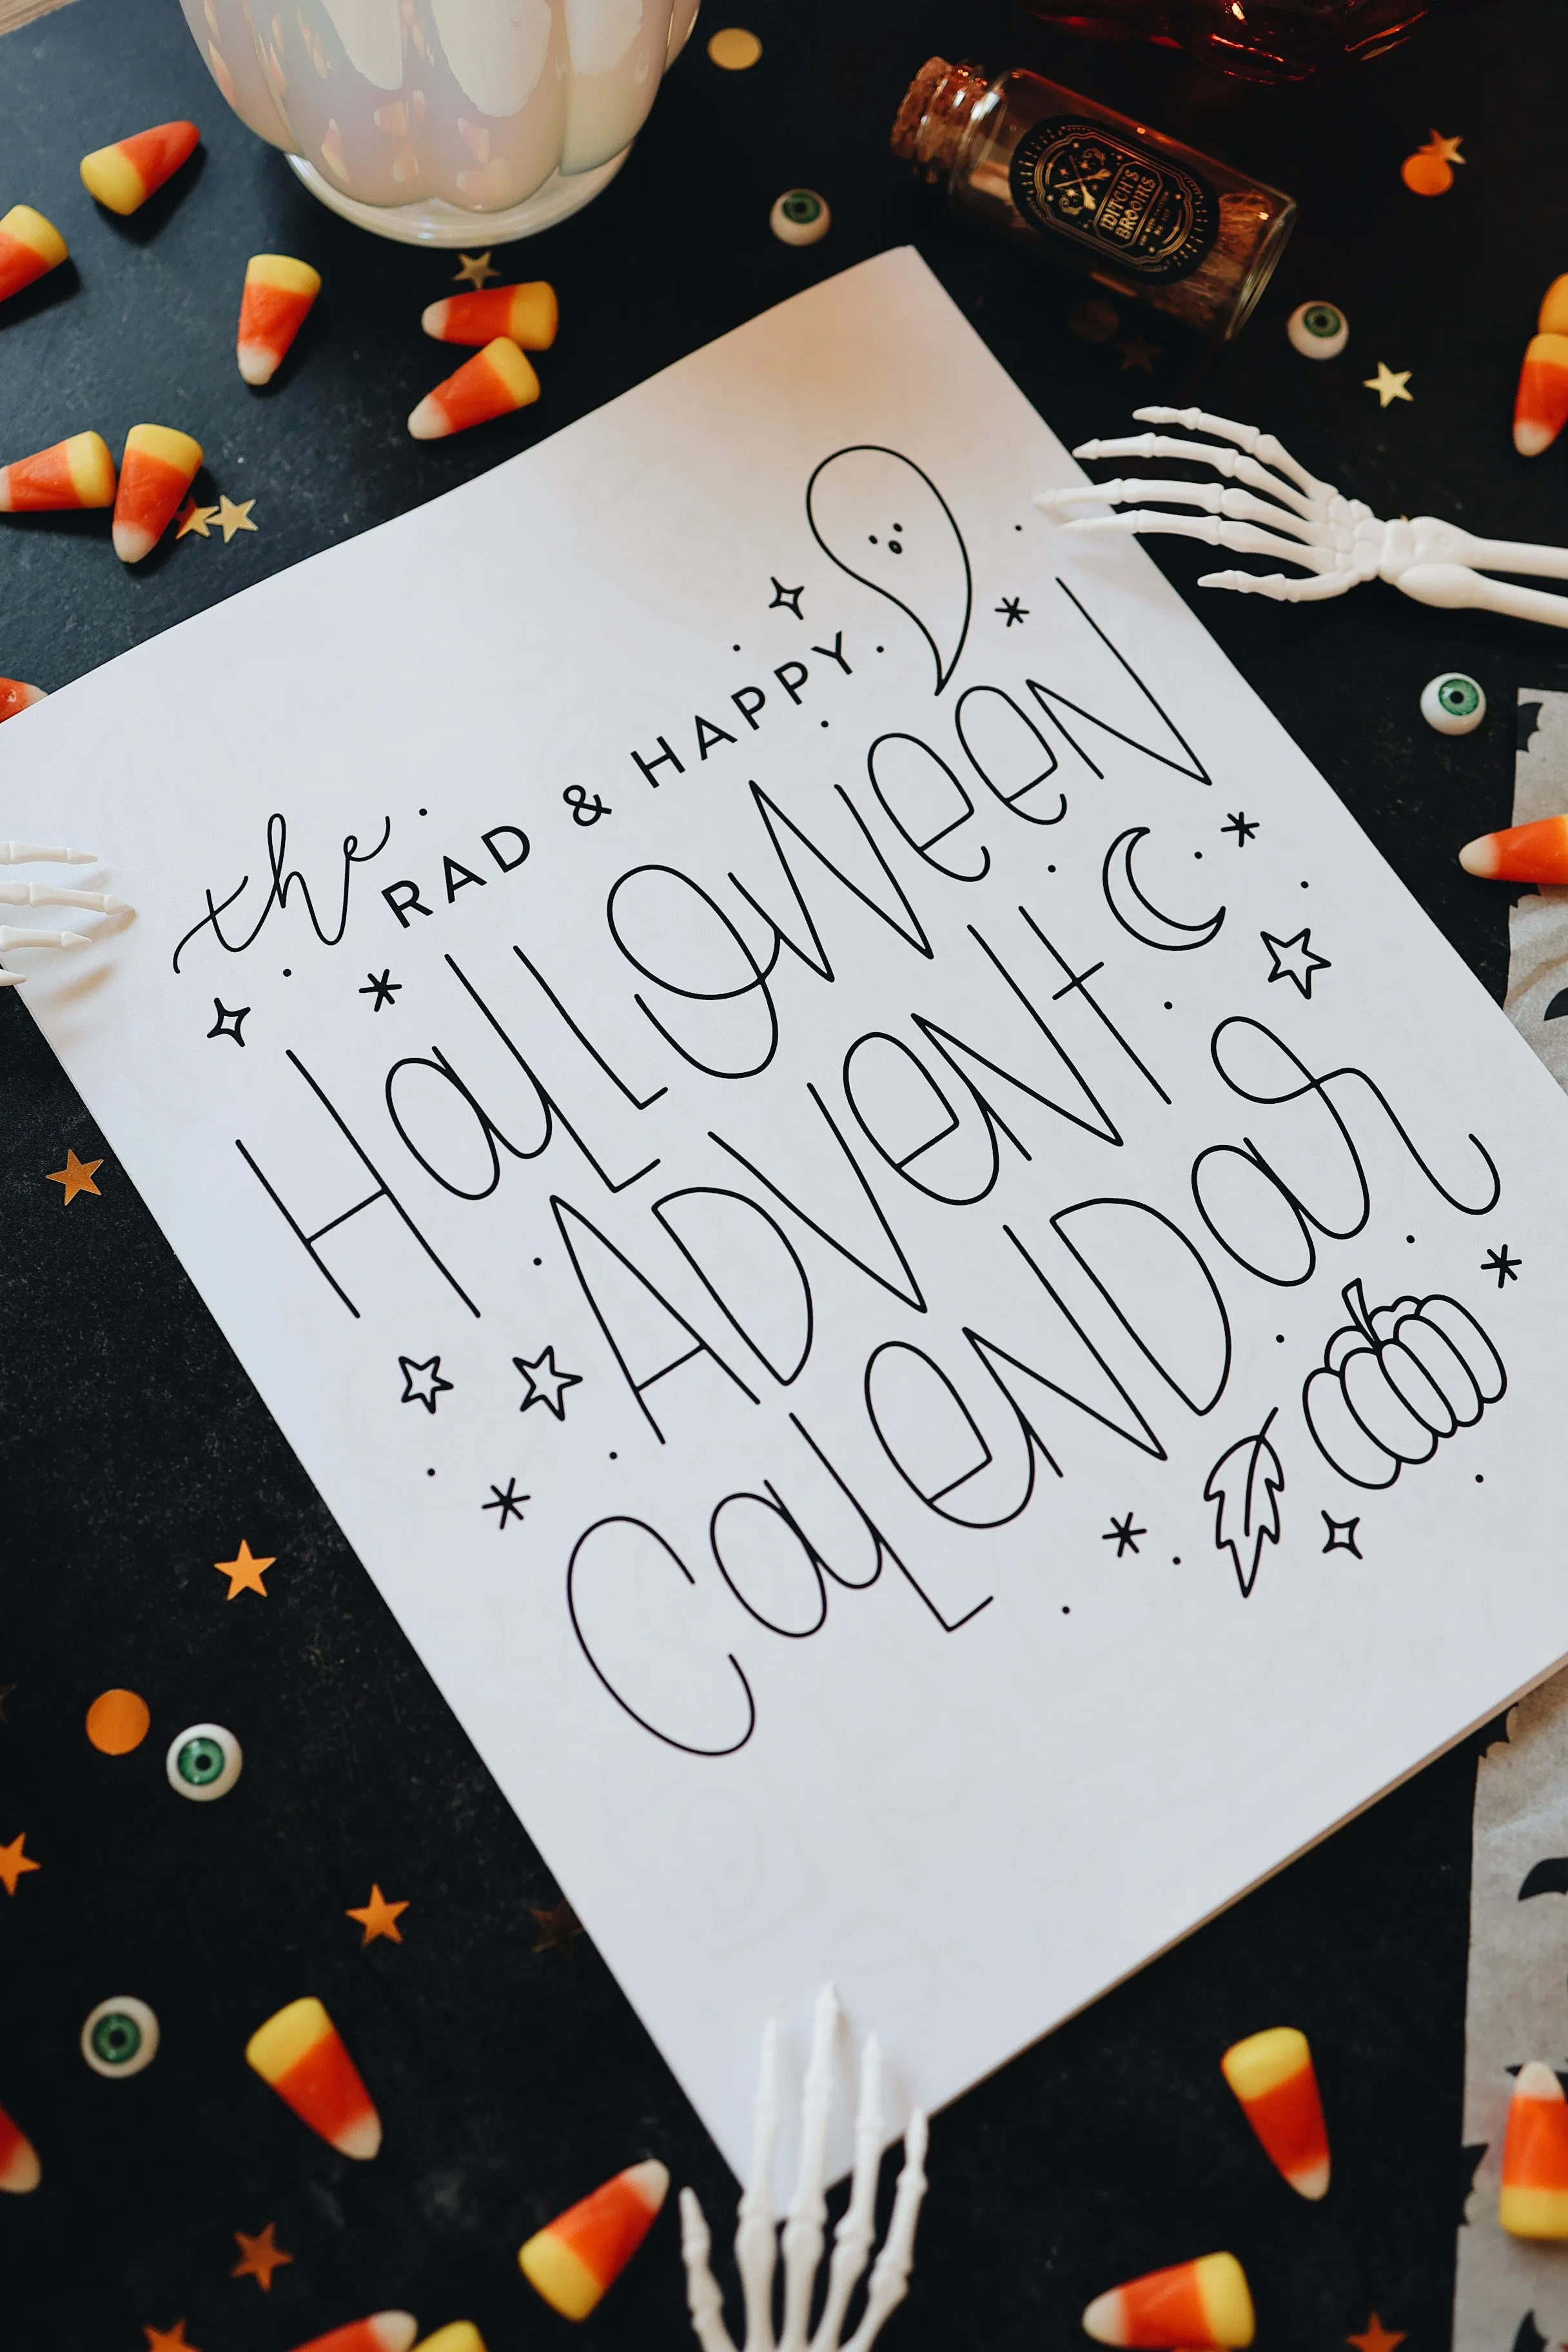 WITCH'S
BROOMS
the RAD & HAPPY
HaLLOWeeN
ADVeNt
CaLeNDar